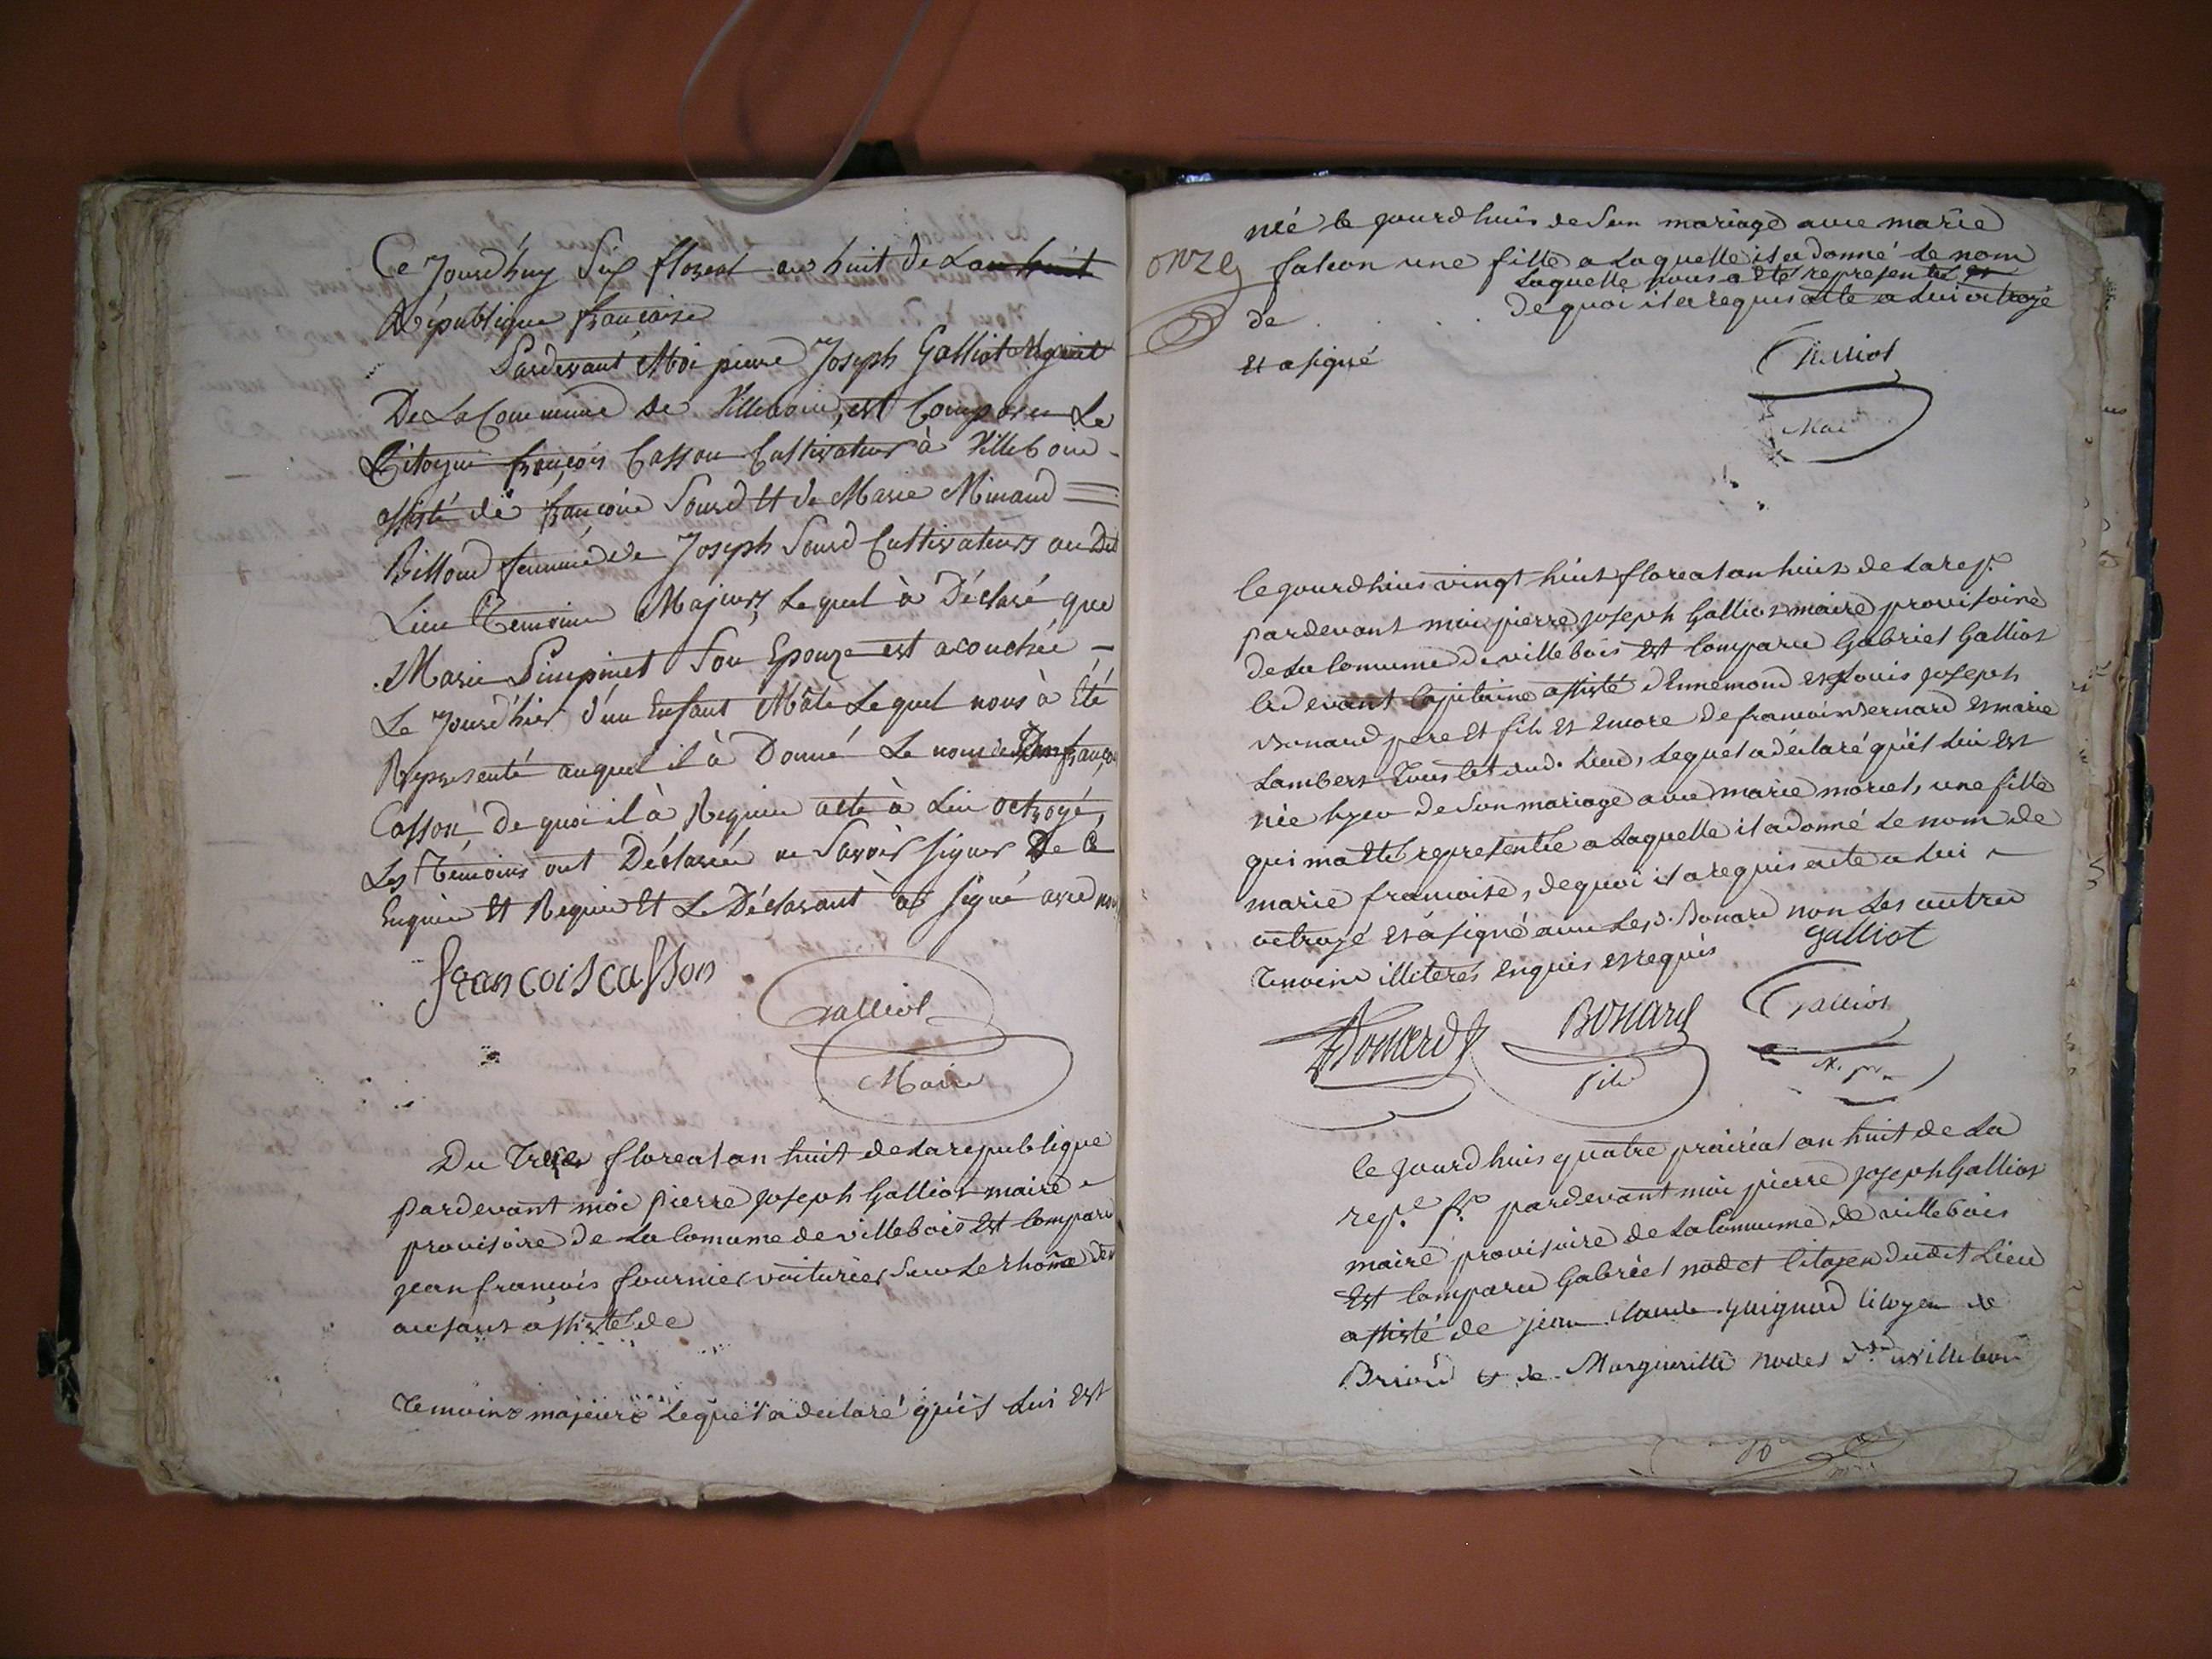 Ce Jourd'huy Six floreal an huit de La
République française
Pardevant Moi pierre Joseph Galliot
De La Commune de Villebois, est Comparu Le
Citoyen françois Casson Cultivateur à Villebois
assisté de françoise Sourd Et de Marie Minaud
Billond femme de Joseph Sourd Cultivateurs au Dit
Lieu Temoins Majeurs, Lequel à Déclaré que
Marie Pinpinet Son Epouze est acouchée
Le Jourd'hier d'un Enfant Mâle Lequel nous à Eté
Representé auquel il à Donné Le nom de Jean françois
Casson de quoi il à Requis acte à Lui octroyé,
Les Témoins ont Déclarés ne Savoir signer De Ce
Enquis Et Requis Et Le Déclarant à signé avec nous
francois casson
Galliot
Maire
Du Treze floreal an huit de la republique
pardevant moi pierre joseph Galliot maire
provisoire de La Comune de villebois Est Comparu
jean francois fournier voiturier Sur Le rhône
au saut assisté de
Temoins majeurs Lequel a declaré qu'il Lui Est
née le jourdhuis de Son mariage avec marie
onze falcon une fille a Laquelle il a donné Le nom
Laquelle nous a Eté representée
de . . . . de quoi il a requis acte a Lui octroyé
Et a signé
Galliot
Mai
le jourdhuis vingt huit floreal an huit de La rep.
pardevant moi pierre joseph Galliot maire provisoire
de La Comune de villebois Est Comparu Gabriel Galliot
Cidevant Capitaine assisté d'Ennemond et Louis joseph
Bonard pere Et fils Et Encore de francois Bernard Et marie
Lambert Tous Lieu, Lequel a déclaré qu'il Lui Est
née hyer de Son mariage avec marie morel, une fille
qui ma Eté representée a Laquelle il a donné Le nom de
marie francoise, de quoi il a requis acte a Lui
octroyé Et a signé avec Les d. Bonard non Les autres
Temoins illiterés Enquis Et requis
galliot
Bonard
Bonard
fils
Galliot
le jourdhuis quatre prairial an huit de La
rep.e fr. pardevant moi pierre joseph Galliot
maire provisoire de La Comune de villebois
Est Comparu Gabriel nodet Citoyen dudit Lieu
assisté de jean Claude guignard Citoyen de
Briord et de Marguerite nodet de villebois
10